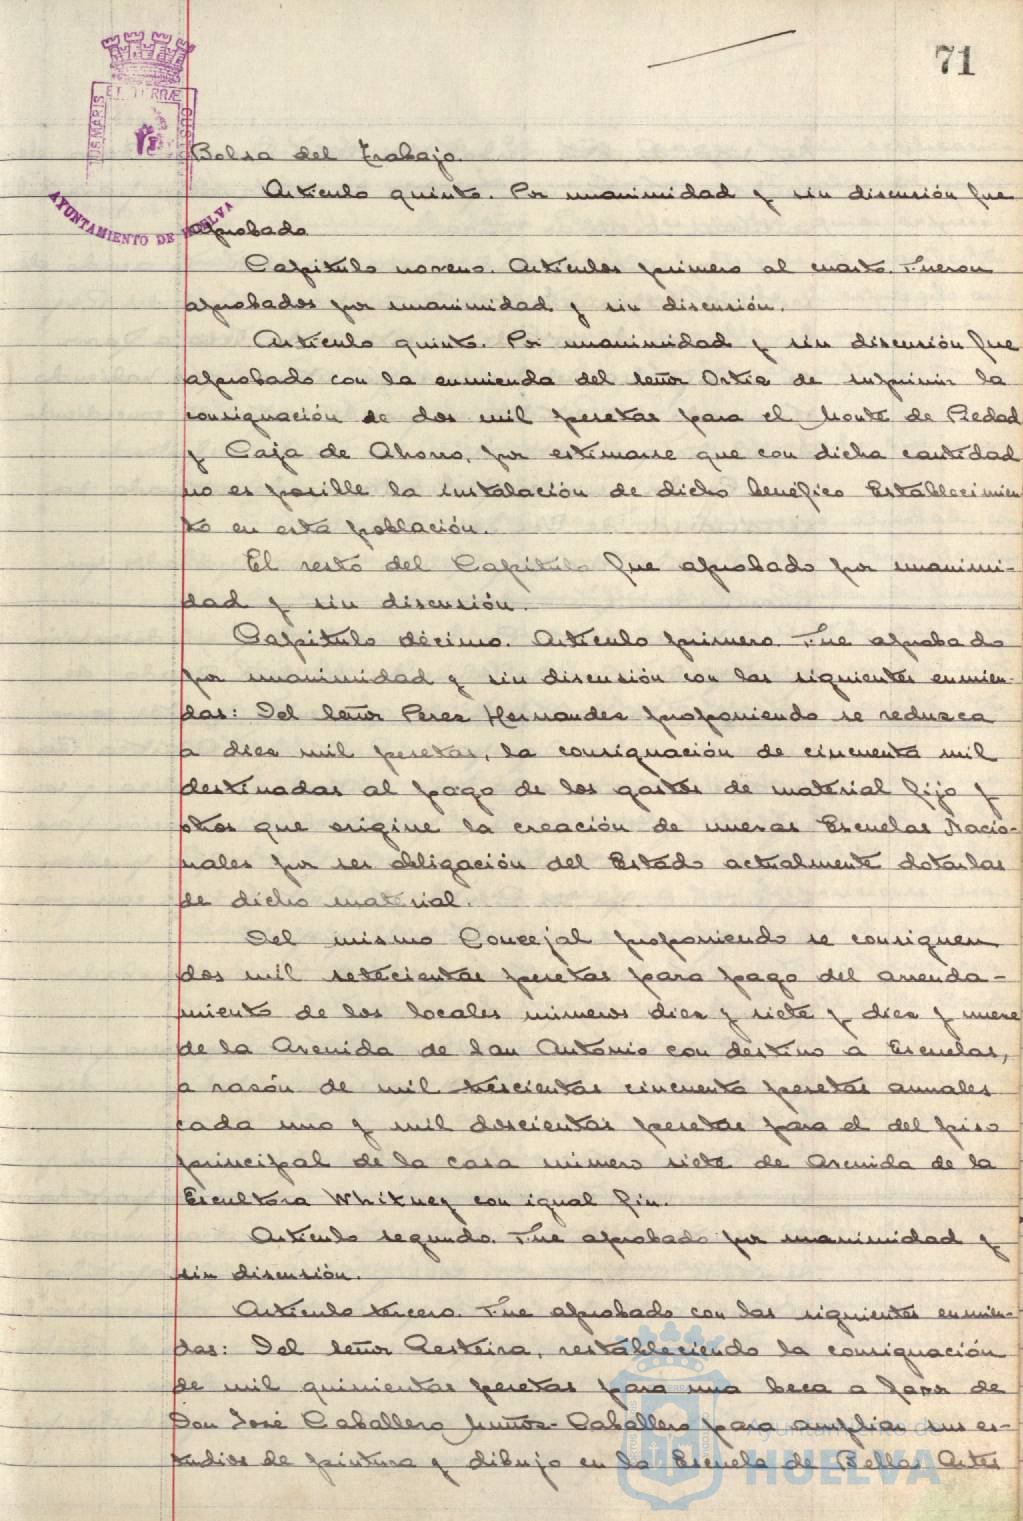 71
ET TERRÆ
AYUNTAMIENTO DE HUELVA
Bolsa del Trabajo.
Artículo quinto. Por unanimidad y sin discusión fue
aprobado
Capítulo noveno. Artículos primero al cuarto. Fueron
aprobados por unanimidad y sin discusión.
Artículo quinto. Por unanimidad y sin discusión fue
aprobado con la enmienda del señor Ortiz de suprimir la
consignación de dos mil pesetas para el Monte de Piedad
y Caja de Ahorro, por estimarse que con dicha cantidad
no es posible la instalación de dicho benéfico Establecimien
to en esta población.
El resto del Capítulo fue aprobado por unanimi-
dad y sin discusión.
Capítulo décimo. Artículo primero. Fue aprobado
por unanimidad y sin discusión con las siguientes enmien-
das: Del señor Perez Hernandez proponiendo se reduzca
a diez mil pesetas, la consignación de cincuenta mil
destinadas al pago de los gastos de material fijo y
otros que origine la creación de nuevas Escuelas Nacio-
nales por ser obligación del Estado actualmente dotarlas
de dicho material.
Del mismo Concejal proponiendo se consignen
dos mil setecientas pesetas para pago del arrenda-
miento de los locales números diez y siete y diez y nueve
de la Avenida de San Antonio con destino a Escuelas,
a razón de mil trescientas cincuenta pesetas anuales
cada uno y mil doscientas pesetas para el del piso
principal de la casa número siete de Avenida de la
Escultora Whitney con igual fin.
Artículo segundo. Fue aprobado por unanimidad y
sin discusión.
Artículo tercero. Fue aprobado con las siguientes enmien-
das: Del señor Aesteira, restableciendo la consignación
de mil quinientas pesetas para una beca a favor de
Don José Caballero Muñoz-Caballero para ampliar sus es-
tudios de pintura y dibujo en la Escuela de Bellas Artes
Ayuntamiento de
HUELVA